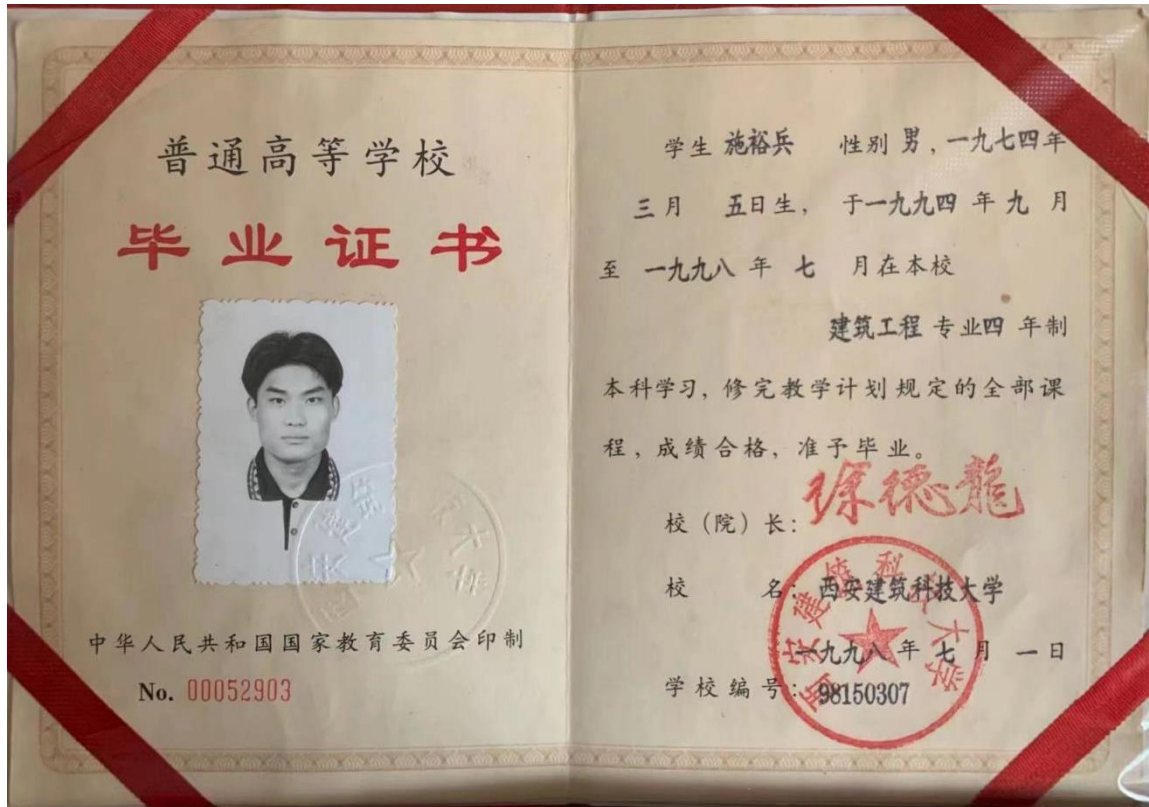 普通高等学校
毕业证书
中华人民共和国国家教育委员会印制
No. 00052903
学生 施裕兵 性别 男,一九七四年
三月 五日生, 于一九九四 年 九 月
至 一九九八 年 七 月在本校
建筑工程 专业四 年制
本科学习, 修完教学计划规定的全部课
程, 成绩合格, 准予毕业。
校(院)长: 徐德龍
校 名: 西安建筑科技大学
一九九八 年 七 月 一日
学校编号: 98150307
西安建筑科技大学